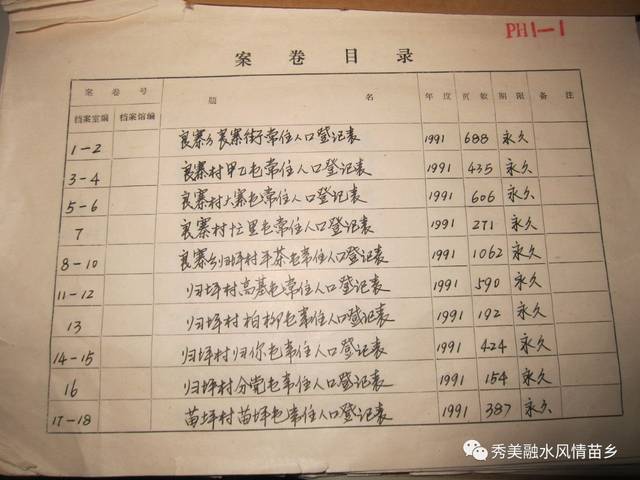 PH1-1
案卷目录
案卷号 题名 年度 页数 期限 备注
档案室编 档案馆编
1-2 良寨乡良寨街常住人口登记表 1991 688 永久
3-4 良寨村甲乙屯常住人口登记表 1991 435 永久
5-6 良寨村大寨屯常住人口登记表 1991 606 永久
7 良寨村 里屯常住人口登记表 1991 271 永久
8-10 良寨乡归坪村平茶屯常住人口登记表 1991 1062 永久
11-12 归坪村高基屯常住人口登记表 1991 590 永久
13 归坪村柏柳屯常住人口登记表 1991 192 永久
14-15 归坪村归你屯常住人口登记表 1991 424 永久
16 归坪村分党屯常住人口登记表 1991 154 永久
17-18 苗坪村苗坪屯常住人口登记表 1991 387 永久
秀美融水风情苗乡